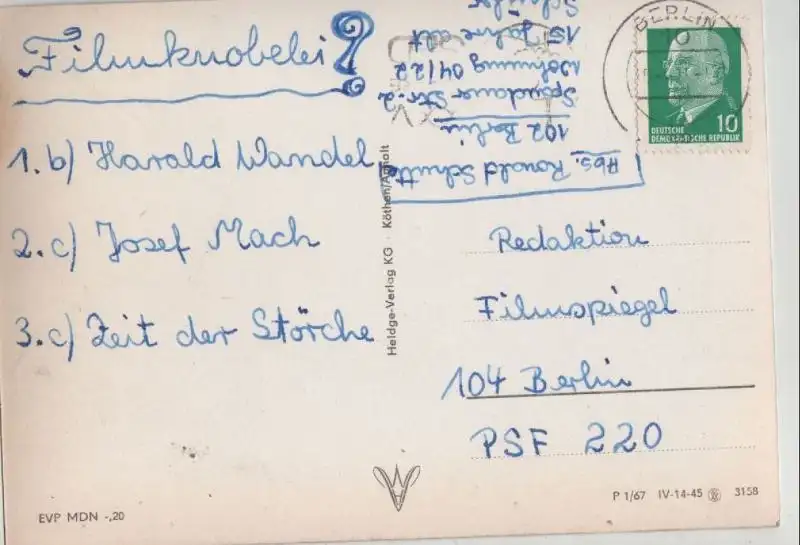 Filmknobelei?
1. b) Harald Wandel
2. c) Josef Mach
3. c) Zeit der Störche
Abs. Ronald Schutte
102 Berlin
Spandauer Str. 2
Wohnung 04/22
15 Jahre alt
Schüler
BERLIN
10
DEUTSCHE
DEMOKRATISCHE REPUBLIK
10
Redaktion
Filmspiegel
104 Berlin
PSF 220
Heldge-Verlag KG · Köthen/Anhalt
EVP MDN -,20
P 1/67 IV-14-45 3158